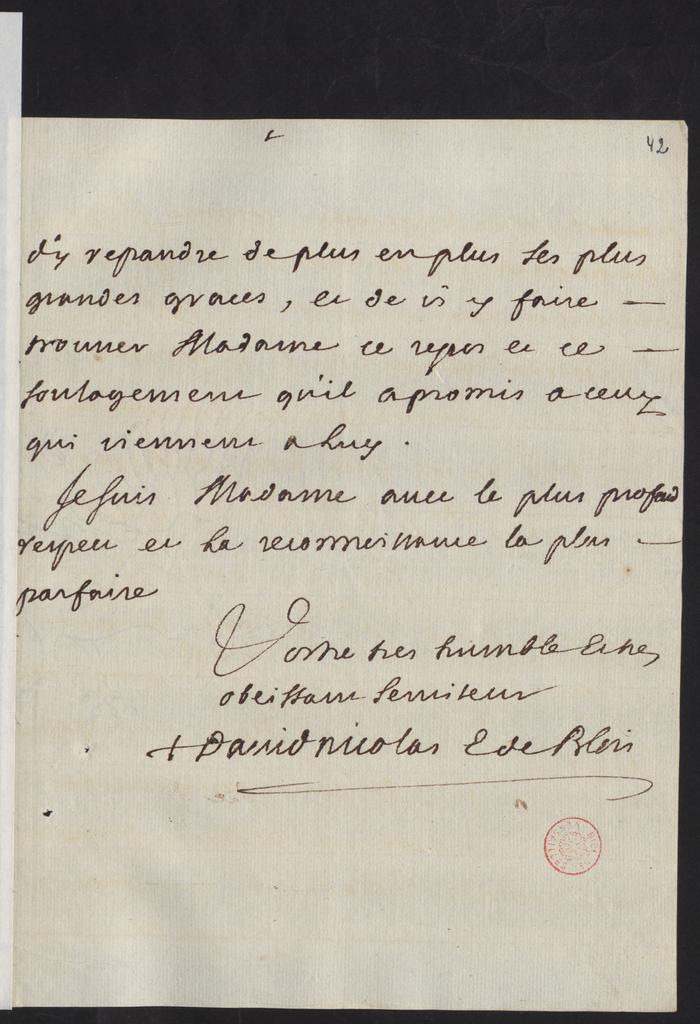 42
d'y repandre de plus en plus ses plus
grandes graces, et de vs y faire —
trouuer Madame ce repos et ce —
soulagement qu'il a promis a ceux
qui viennent a luy.
Je suis Madame auec le plus profond
respect et la reconnoissance la plus —
parfaite
Vostre tres humble et tres
obeissant seruiteur
+ Dauid nicolas E de Blois